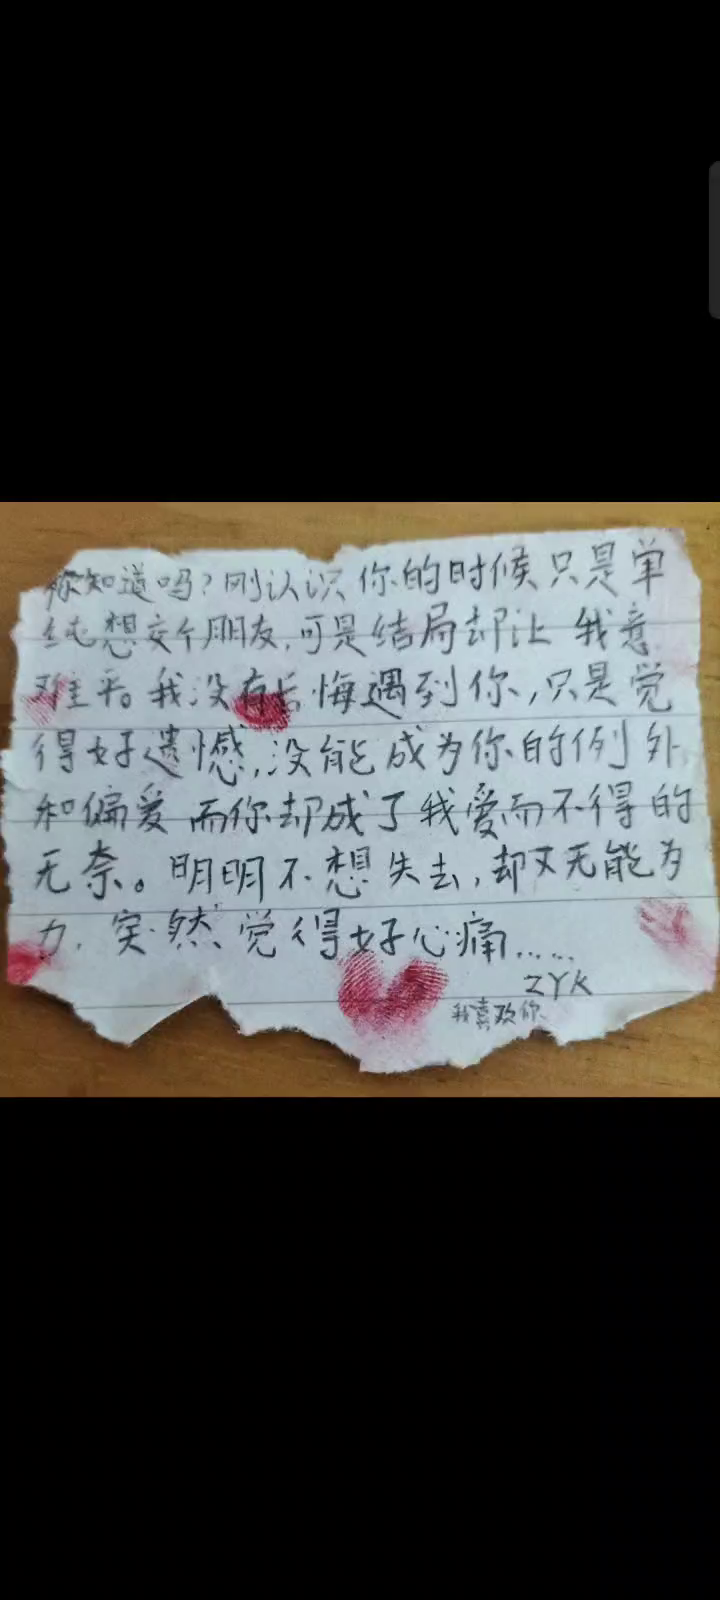 你知道吗?刚认识你的时候只是单
纯想交个朋友,可是结局却让我意
难平。我没有后悔遇到你,只是觉
得好遗憾,没能成为你的例外
和偏爱而你却成了我爱而不得的
无奈。明明不想失去,却又无能为
力.突然觉得好心痛……
ZYK
我喜欢你